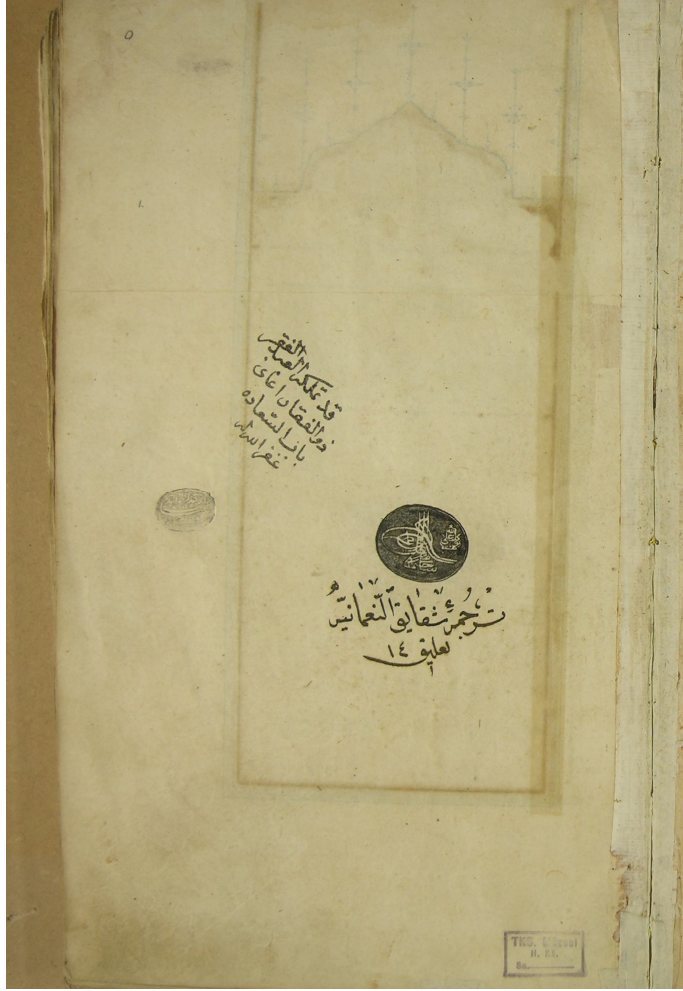 ٥
قد تملكه العبد الفقير
ذو الفقار اغاى
باب السعاده
غفر الله له
ترجمهٔ شقايق النعمانيه
تعليق ١٤
TKS. Müzesi
H. Kt.